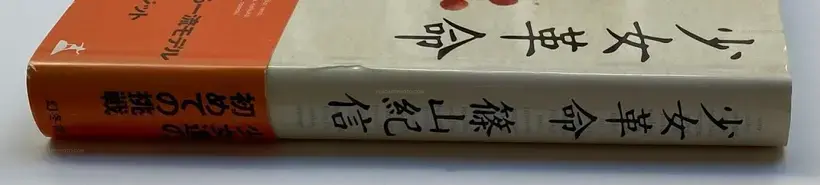 少女革命
少女革命 篠山紀信
少女達の
初めての挑戦
一流モデル